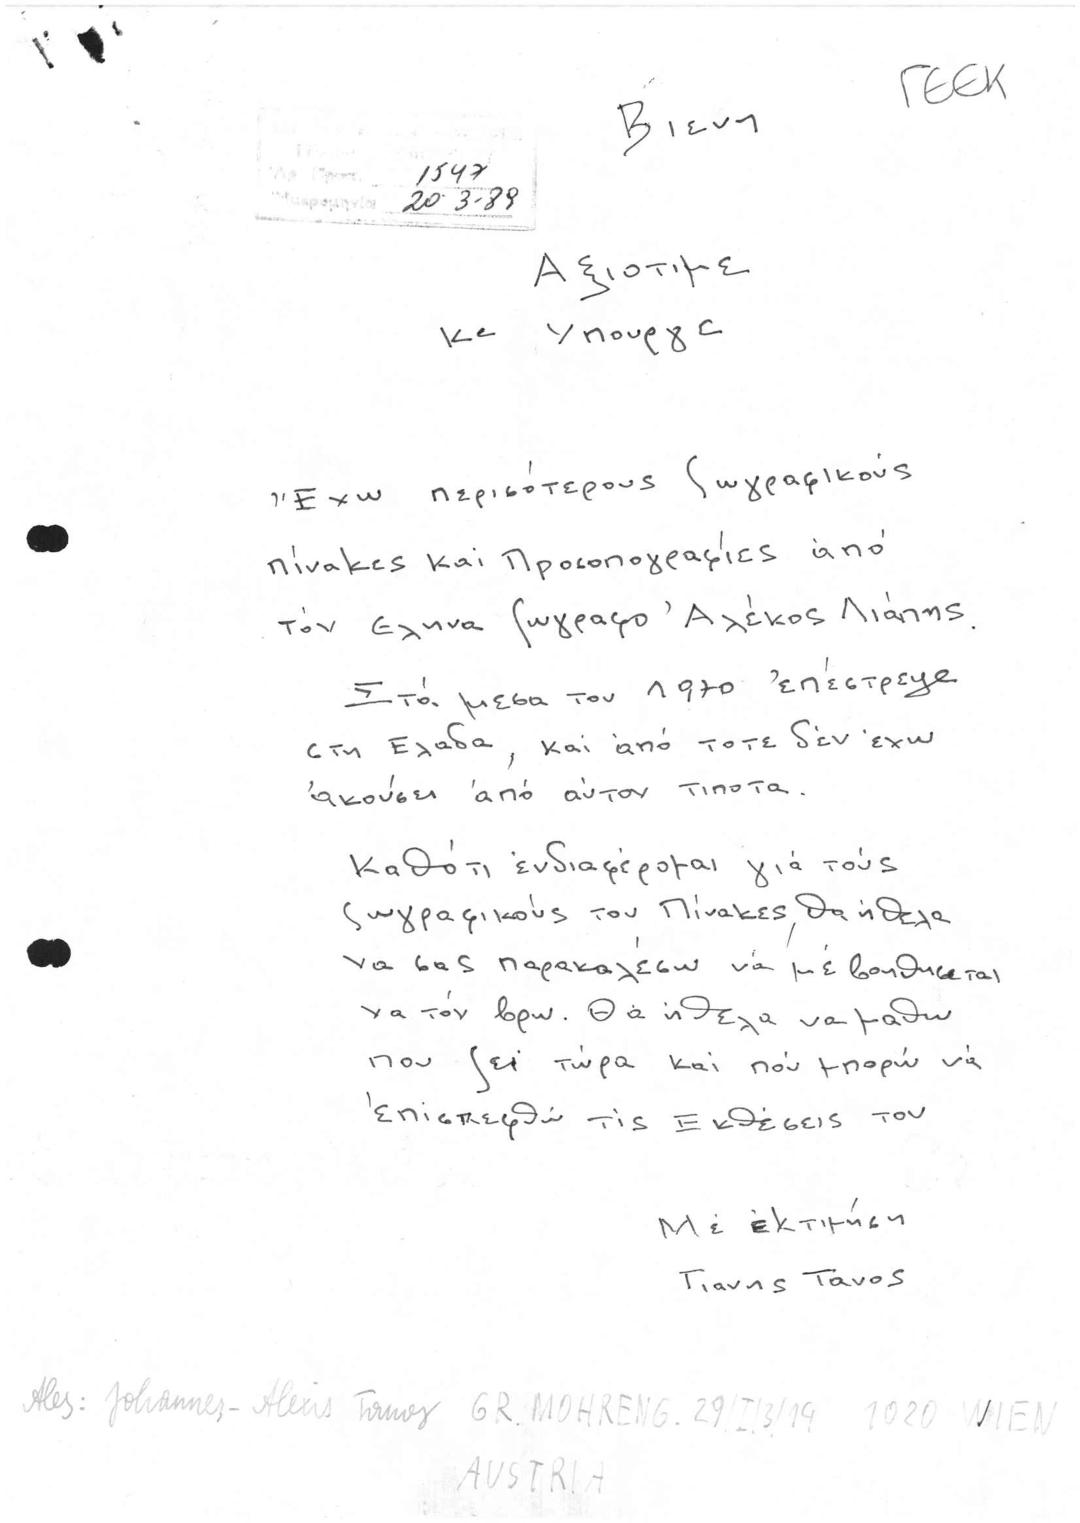 ΓΕΕΚ
Βιενη
Ἀρ. Πρωτ. 1547
Ἡμερομηνία 20-3-89
Αξιοτιμε
κε Υπουργε
Ἔχω περισότερους ζωγραφικούς
πίνακες και Προσοπογραφίες ἀπό
τόν Εληνα ζωγραφο Ἀλέκος Λιάπης.
Στά μεσα του 1970 ἐπέστρεψε
στη Ελαδα, και ἀπό τοτε δέν ἐχω
ἀκούσει ἀπό αὐτον τιποτα.
Καθότι ἐνδιαφέρομαι γιά τούς
ζωγραφικούς του Πίνακες, θα ἠθελα
να σας παρακαλέσω νά μέ βοηθησεται
να τόν βρω. Θά ἠθελα να μαθω
που ζει τώρα και πού μπορώ νά
ἐπισκεφθώ τίς Εκθέσεις του
Μέ ἐκτιμήση
Γιανης Τανος
Johannes-Alexis Tanos GR. MOHRENG. 29/I/3/19 1020 WIEN
AUSTRIA